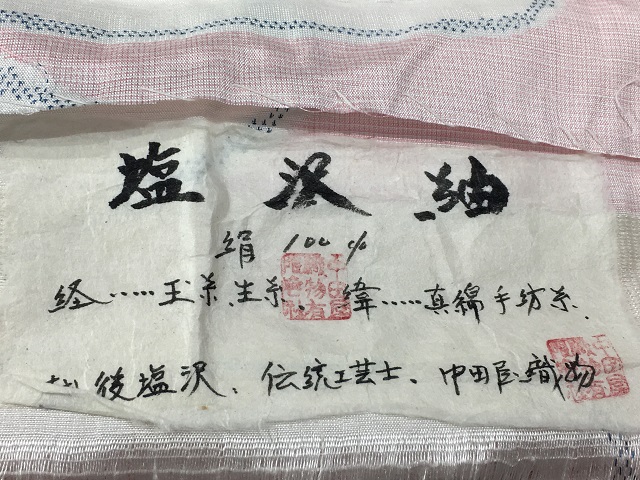 塩沢紬
絹 100%
経……玉糸生糸、緯……真綿手紡糸、
後塩沢、伝統工芸士、中田屋織物